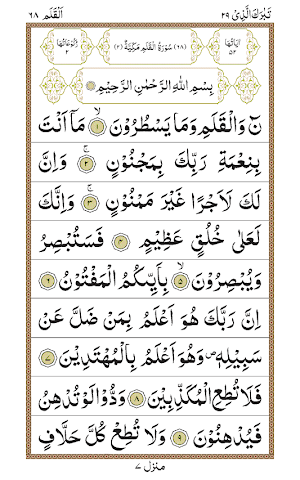 تَبٰرَكَ الَّذِیْ ٢٩
اَلْقَلَم ٦٨
اٰیَاتُهَا ٥٢
(٦٨) سُوْرَةُ الْقَلَمِ مَکِّیَّةٌ (٢)
رُکُوْعَاتُهَا ٢
بِسْمِ اللّٰهِ الرَّحْمٰنِ الرَّحِیْمِ
نٓ وَالْقَلَمِ وَمَا یَسْطُرُوْنَ ۙ‏﴿١﴾ مَاۤ اَنْتَ
بِنِعْمَةِ رَبِّكَ بِمَجْنُوْنٍ ۚ‏﴿٢﴾ وَاِنَّ
لَكَ لَاَجْرًا غَیْرَ مَمْنُوْنٍ ۚ‏﴿٣﴾ وَاِنَّكَ
لَعَلٰی خُلُقٍ عَظِیْمٍ ﴿٤﴾ فَسَتُبْصِرُ
وَیُبْصِرُوْنَ ۙ‏﴿٥﴾ بِاَیِّىكُمُ الْمَفْتُوْنُ ﴿٦﴾
اِنَّ رَبَّكَ هُوَ اَعْلَمُ بِمَنْ ضَلَّ عَنْ
سَبِیْلِهٖ ۪ وَهُوَ اَعْلَمُ بِالْمُهْتَدِیْنَ ﴿٧﴾
فَلَا تُطِعِ الْمُكَذِّبِیْنَ ﴿٨﴾ وَدُّوْا لَوْ تُدْهِنُ
فَیُدْهِنُوْنَ ﴿٩﴾ وَلَا تُطِعْ كُلَّ حَلَّافٍ
منزل ٧